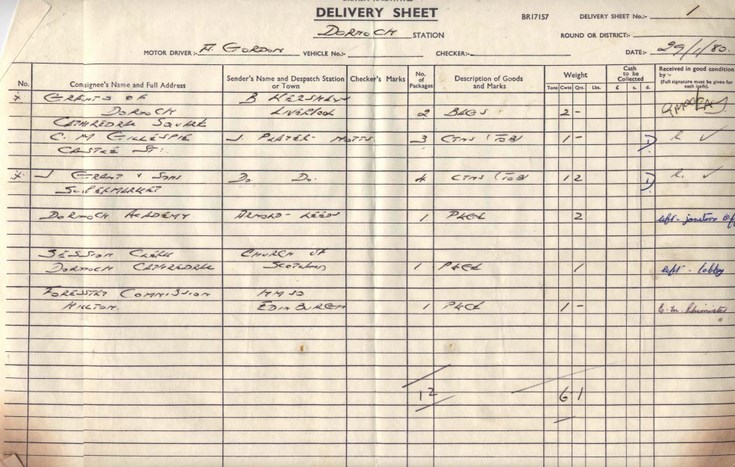 DELIVERY SHEET
BR17157 DELIVERY SHEET No.- 1
DORNOCH STATION
ROUND OR DISTRICT:-
MOTOR DRIVER:- A. GORDON VEHICLE No:- CHECKER:- DATE:- 29/1/80.
No. Consignee's Name and Full Address Sender's Name and Despatch Station or Town Checker's Marks No. of Packages Description of Goods and Marks Weight Tons Cwts Qrs. Lbs. Cash to be Collected £ s. d. Received in good condition by:- (Full signature must be given for each job).
x GRANTS OF B HERSHAW
DORNOCH LIVERPOOL 2 BAGS 2 -
CATHEDRAL SQUARE
C. M GILLESPIE J PLAYER - NOTTS. 3 CTNS (TOB) 1 - ✓
CASTLE ST.
x J GRANT & SONS DO. DO. 4 CTNS (TOB) 1 2 ✓
SUPERMARKET
DORNOCH ACADEMY ARNOLD - LEEDS 1 PKGE 2 left - janitors
SESSION CLERK CHURCH OF
DORNOCH CATHEDRAL SCOTLAND 1 PKGE 1 left - lobby
FORESTRY COMMISSION HMSO
HILTON. EDINBURGH 1 PKGE 1 -
12 6 1